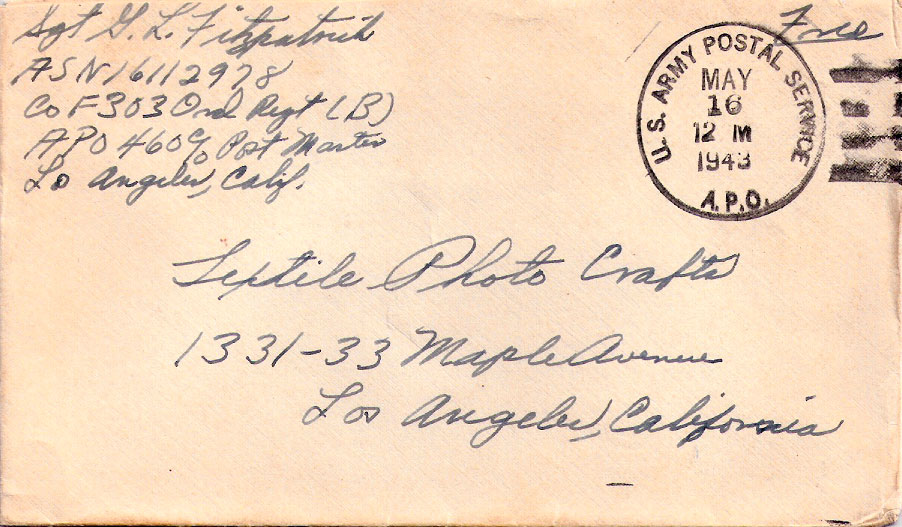 Sgt G. L. Fitzpatrick
ASN 16112978
Co F 303 Ord Regt (B)
APO 460 c/o Post Master
Los Angeles, Calif.
Free
U.S. ARMY POSTAL SERVICE
MAY
16
12 M
1943
A.P.O.
Textile Photo Crafts
1331-33 Maple Avenue
Los Angeles, California